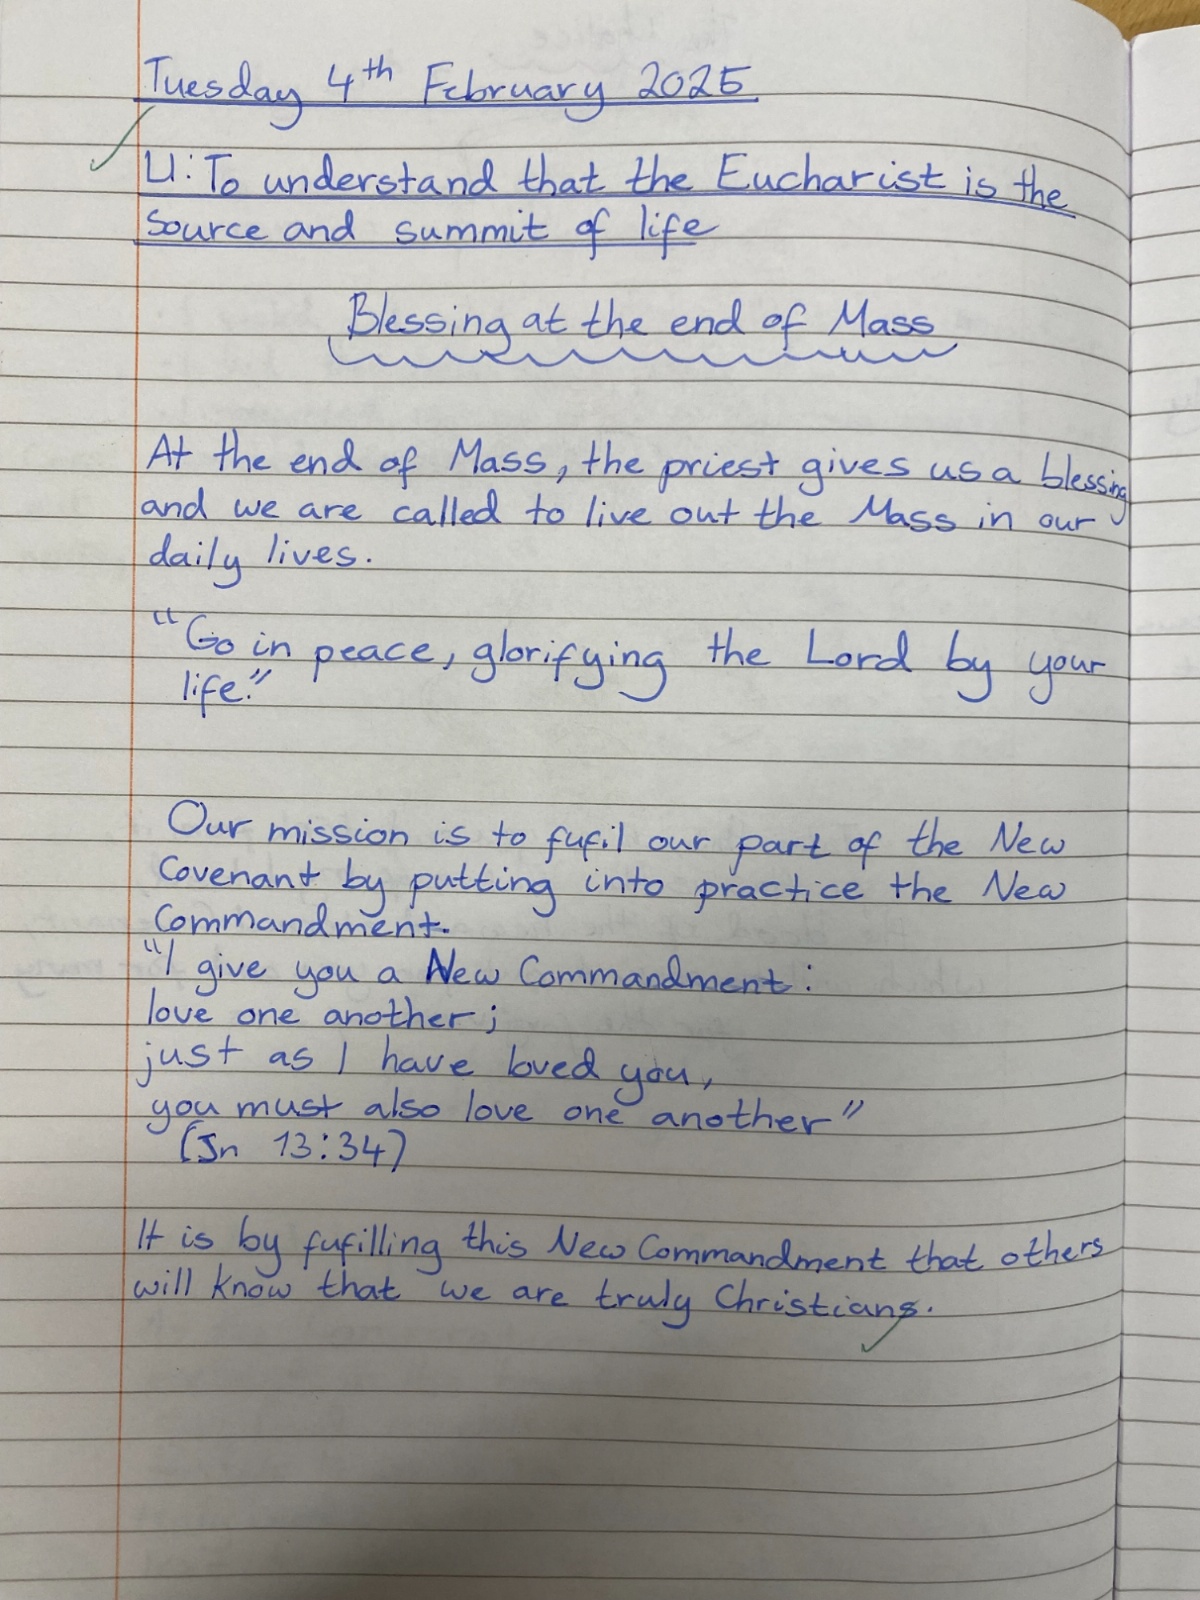 Tuesday 4th February 2025
LI: To understand that the Eucharist is the
source and summit of life
Blessing at the end of Mass
At the end of Mass, the priest gives us a blessing
and we are called to live out the Mass in our
daily lives.
"Go in peace, glorifying the Lord by your
life."
Our mission is to fufil our part of the New
Covenant by putting into practice the New
Commandment.
"I give you a New Commandment:
love one another;
just as I have loved you,
you must also love one another"
(Jn 13:34)
It is by fufilling this New Commandment that others
will know that we are truly Christians.